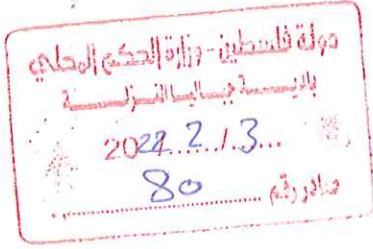 دولة فلسطين - وزارة الحكم المحلي
بلديـــة جباليا النـزلـــة
2022.2./.3...
صادر رقم ..... 80 .....